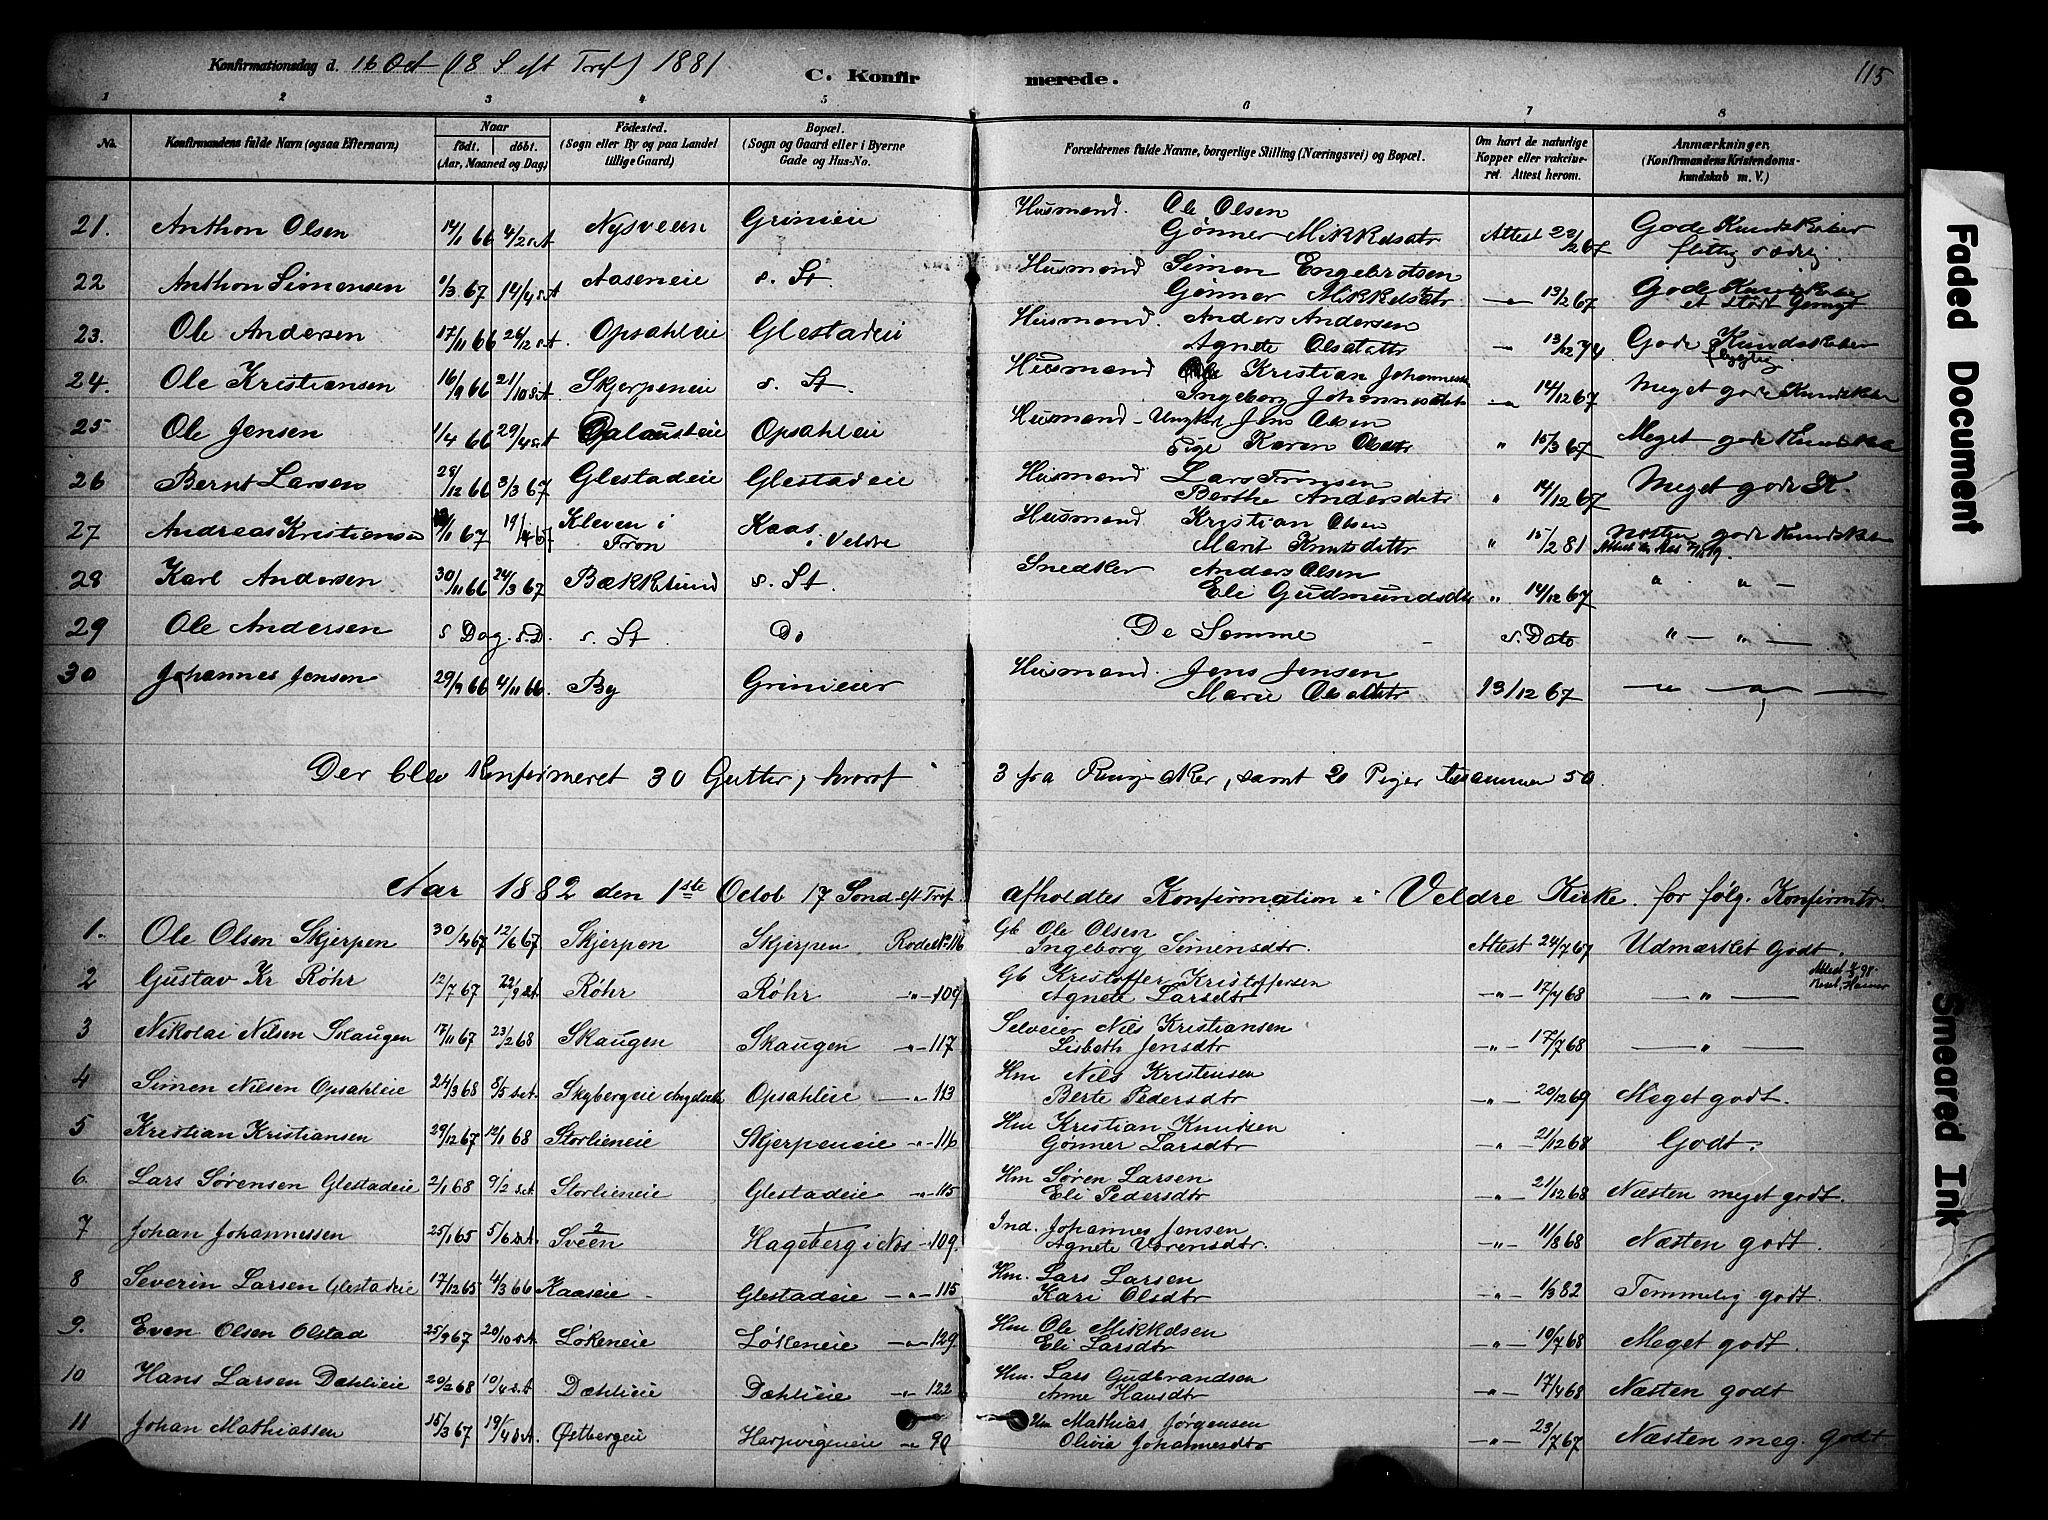 Konfirmationsdag d. 16 Oct (18 S eft Tref) 1881 C. Konfirmerede. 115
1 2 3 4 5 6 7 8
No. Konfirmandens fulde Navn (ogsaa Efternavn) Naar födt. döbt. (Aar, Maaned og Dag) Födested. (Sogn eller By og paa Landet tillige Gaard) Bopæl. (Sogn og Gaard eller i Byerne Gade og Hus-No. Forældrenes fulde Navne, borgerlige Stilling (Næringsvei) og Bopæl. Om havt de naturlige Kopper eller vakcineret. Attest herom. Anmærkninger. (Konfirmandens Kristendomskundskab m. V.)
21. Anthon Olsen 14/1 66 4/2 s.A Nysveen Grinieie Husmand. Ole Olsen Gönner Mikkelsdtr Attest 22/2 67 Gode Kundskaber flittig sædelig
22 Anthon Simensen 1/3 67 14/4 s.A Aaseneie s. St. Husmand Simen Engebretsen Gönner Mikkelsdtr 13/12 67 Gode Kundskaber
23. Ole Andersen 17/11 66 26/12 s.A Opsahleie Glestadeie Husmand. Anders Andersen Agnete Olsdatter 13/12 74 Gode Kundskaber
24. Ole Kristiansen 16/9 66 21/10 s.A Skjerpeneie s. St. Husmand Kristian Johannessen Ingeborg Johannesdtr 14/12 67 Meget gode Kundskaber
25 Ole Jensen 1/4 66 29/4 s.A Opsahleie Husmand Ungkarl Jens Olsen Pige Karen Olsdtr " 15/3 67 Meget gode Kundskab
26 Bernt Larsen 28/12 66 3/3 67 Glestadeie Glestadeie Husmand Lars Berthe Andersdatr " 14/12 67 Meget gode K.
27 Andreas Kristiansen /1 67 19/4 67 Kleven i Fron Kaas i Veldre Husmand Kristian Olsen Marit Knutsdattr " 15/2 81 Næsten gode Kundskaber
28 Karl Andersen 30/11 66 24/3 67 Bækkelund s. St. Snedker Anders Olsen Eli Gudmundsdtr " 14/12 67 " " —
29 Ole Andersen s Dag s. D. s. St. Do De Samme s. Dato " — " —
30 Johannes Jensen 29/9 66 4/11 66. By Grinieier Husmand. Jens Jensen Marie Olsdattr 13/12 67 — " — " —
Der blev Konfirmeret 30 Gutter, hvoraf 3 fra Ringsaker, samt 20 Piger tilsammen 50.
Aar 1882 den 1ste Octob 17 Sönd. eft Tref. afholdtes Konfirmation i Veldre Kirke. for fölg. Konfirmtr.
1. Ole Olsen Skjerpen 30/4 67 12/6 67 Skjerpen Skjerpen Rode No 116 Gb Ole Olsen Ingeborg Simensdtr. Attest 24/7 67 Udmærket Godt.
2 Gustav Kr Röhr 12/7 67 22/9 s.A Röhr Röhr -"- 109 Gb Kristoffer Kristoffersen Agnete Larsdtr -"- 17/7 68 — " —
3 Nikolai Nilsen Skaugen 17/11 67 23/2 68 Skaugen Skaugen -"- 117 Selveier Nils Kristiansen Lisbeth Jensdtr -"- 17/7 68 — " —
4 Simen Nilsen Opsahleie 24/3 68 8/5 s.A. Skybergeie Opsahleie -"- 113 Hm Nils Kristensen Berte Pedersdtr -"- 20/12 69 Meget godt.
5 Kristian Kristiansen 29/12 67 12/1 68 Storlieneie Skjerpeneie -"- 116 Hm Kristian Knudsen Gönner Larsdtr -"- 21/12 68 Godt.
6. Lars Sörensen Glestadeie 2/1 68 9/2 s.A. Storlieneie Glestadeie -"- 115 Hm Sören Larsen Eli Pedersdtr -"- 21/12 68 Næsten meget godt.
7 Johan Johannessen 25/1 65 5/6 s.A. Sveen Hageberg i Næs -109. Ind. Johannes Jensen Agnete Sörensdtr. -"- 11/8 68 Næsten godt.
8 Severin Larsen Glestadeie 17/12 65 4/3 66 Kaaseie - Glestadeie -"- 115 Hm. Lars Larsen Kari Olsdtr -"- 1/3 82 Temmelig godt.
9. Even Olsen Olstad 25/9 67 20/10 s.A. Lökeneie Lökeneie -"- 129. Hm Ole Mikkelsen Eli Larsdtr -"- 10/7 68 Meget godt.
10 Hans Larsen Dæhlieie 20/2 68 10/4 s.A Dæhlieie Dæhlieie -"- 122 Hm. Lars Gudbrandsen Anne Hansdtr -"- 17/4 68 Næsten godt
11 Johan Mathiassen 15/3 67 19/4 s.A. Östbergeie Harpvigeneie -"- 90 Hm Mathias Jörgensen Olivia Johannesdtr -"- 23/7 67 Næsten meg. godt
Faded Document
Smeared Ink